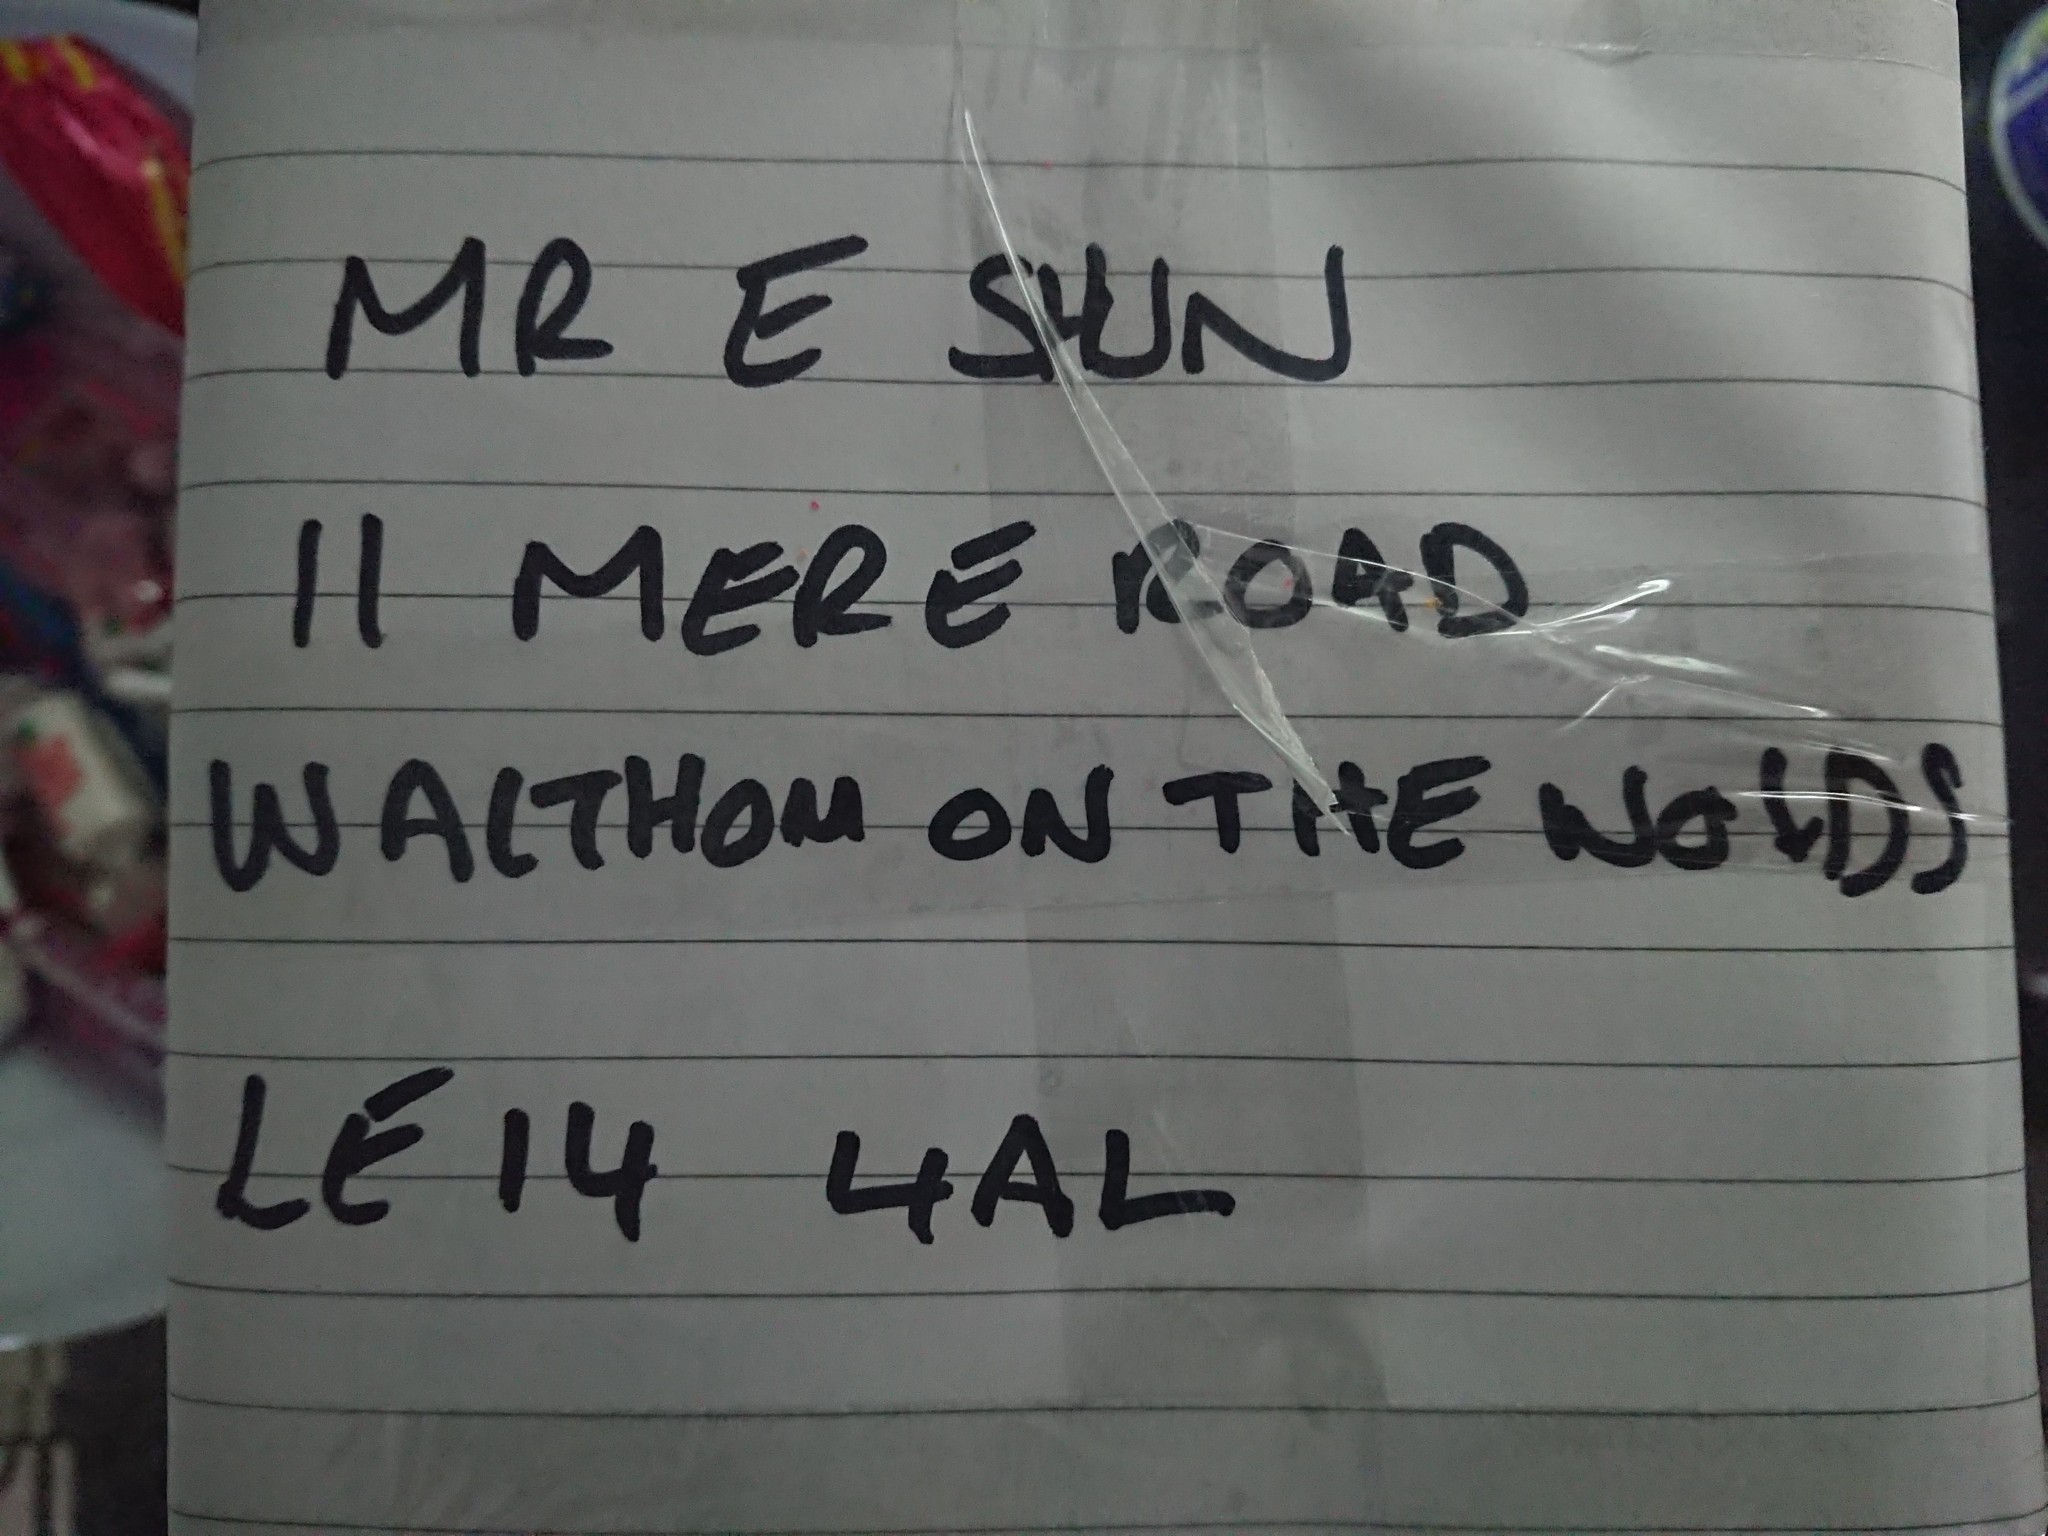 MR E SUN
11 MERE ROAD
WALTHOM ON THE WOLDS
LE14 4AL